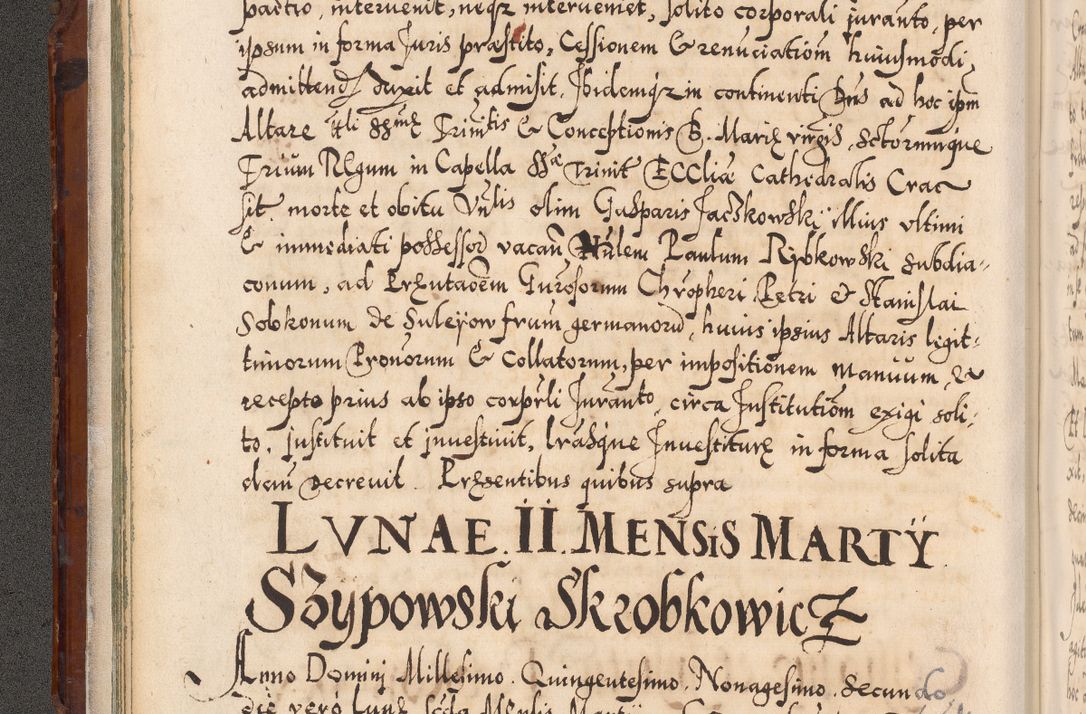 pactio, intervenit, neqz interveniet, solito corporali juranto, per
ipsum in forma Juris præstito, Cessionem & renuciatiom huiusmodi,
admittend duxit et admisit. Ibidemqz in continenti Dns ad hoc ipm
Altare tli SSmę Trinitis & Conceptionis B. Marię virgis, Sctormque
Trium REgum in Capella SSæ Trinit ECCliæ Cathedralis Crac
sit, morte et obitu Vnlis olim Gasparis Jaczkowski illius vltimi
& immediati possessor vacan Nulem Paulum Rybkowski subdia-
conum, ad Pręntaoem Gnrosorum Chropheri Petri & Stanislai
Sobkonum de Suleyow frum germanoru, huius ipsius Altaris legit-
timorum Pronorum & Collatorum, per impositionem manuum, &
recepto prius ab ipso corprli Juranto, circa Institutiom exigi soli-
to, Instituit et investivit, lrasque Investiturę in forma solita
dem decrevit. Pręsentibus quibus supra
LVNAE. II. MENSIS MARTŸ.
Szypowski Skrobkowicz
Anno Domini Millesimo. Quingentesimo. Nonagesimo. Secundo
die vero Lunę Scda Mensis Martij